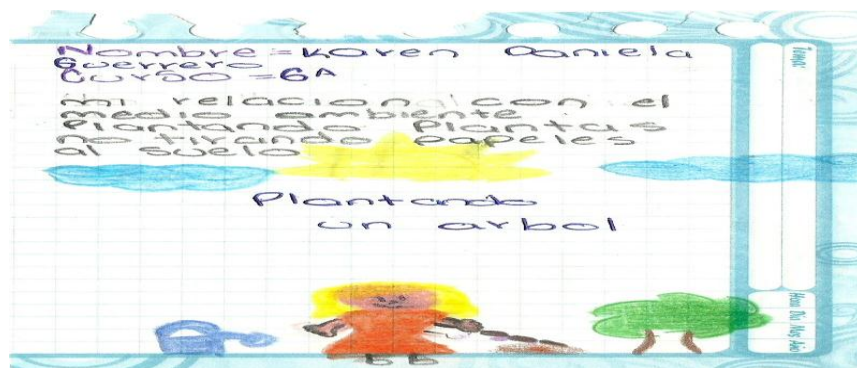 Nombre = Karen Daniela
Guerrero
Curso = 6A
mi relacion con el
medio ambiente
Plantando Plantas
no tirando papeles
al suelo
Plantando
un arbol
Tema:
Hora Dia Mes Año